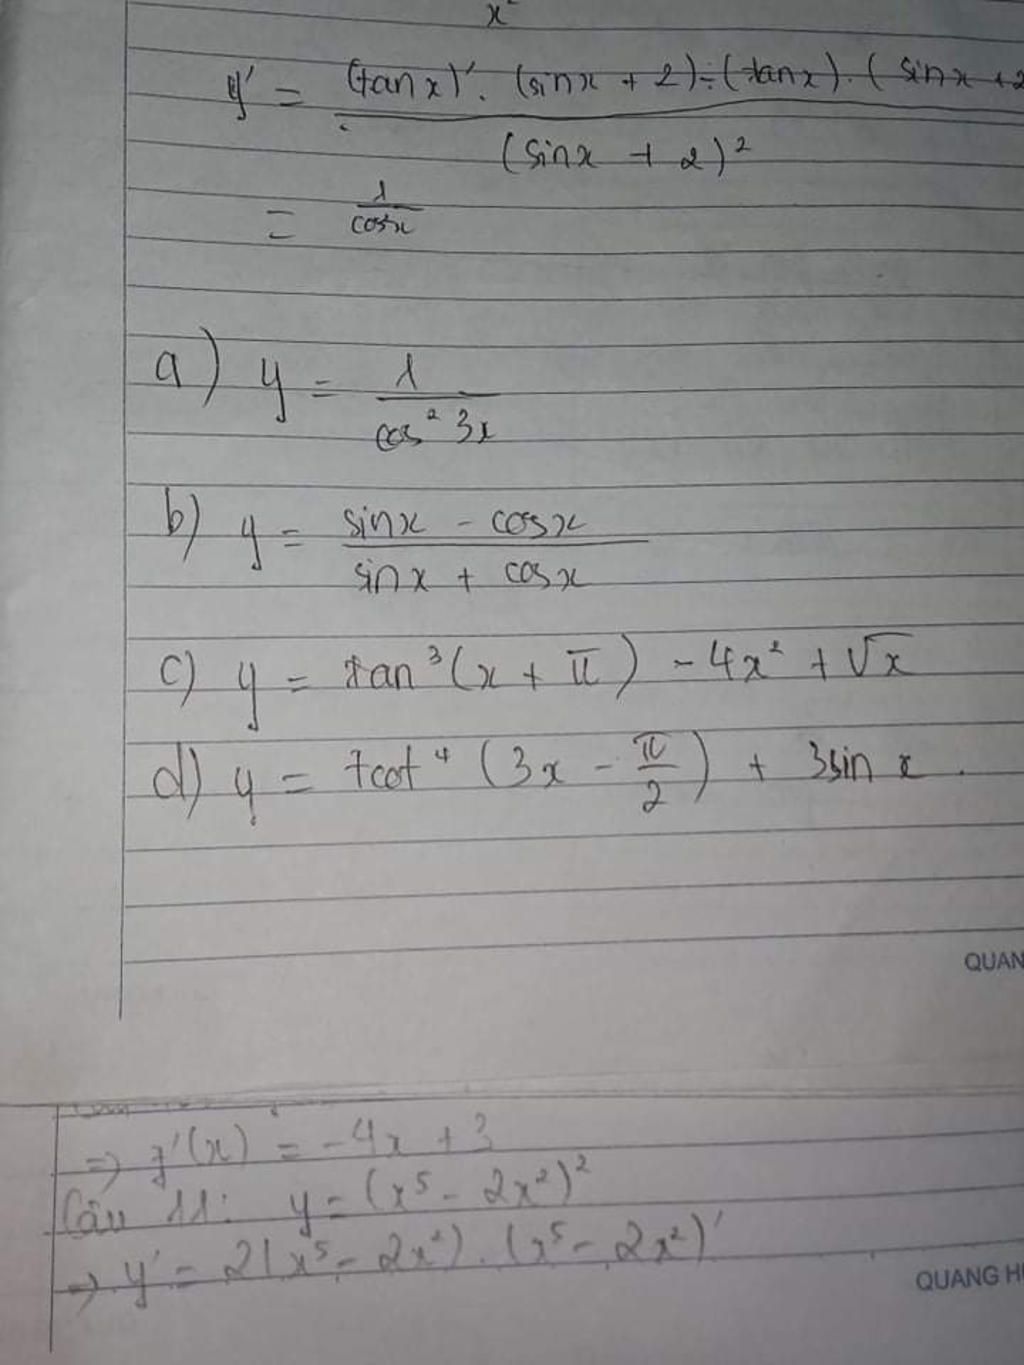 x²
y' = (tanx)'. (sinx + 2) - (tanx). (sinx + 2
(sinx + 2)²
= 1/cos²x
a) y = 1/cos² 3x
b) y = sinx - cosx / sinx + cosx
c) y = tan³(x + π) - 4x² + √x
d) y = 7cot⁴ (3x - π/2) + 3sin x.
QUAN
=> y'(x) = -4x + 3
Câu 11: y = (x⁵ - 2x²)²
=> y' = 2(x⁵ - 2x²). (x⁵ - 2x²)'
QUANG H